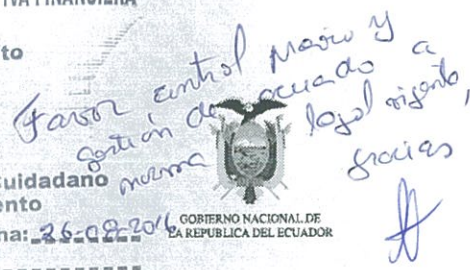 TIVA FINANCIERA
to
Favor control previo y
gestión de acuerdo a
norma legal vigente,
gracias
Cuidadano
ento
ha: 26-02-2016
GOBIERNO NACIONAL DE
LA REPUBLICA DEL ECUADOR